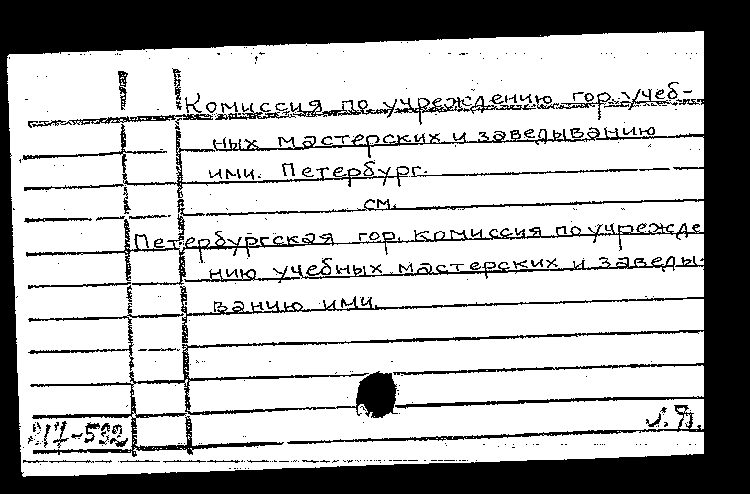 Комиссия по учреждению гор. учеб-
ных мастерских и заведыванию
ими. Петербург.
см.
Петербургская гор. комиссия по учрежде
нию учебных мастерских и заведы-
ванию ими.
217-532